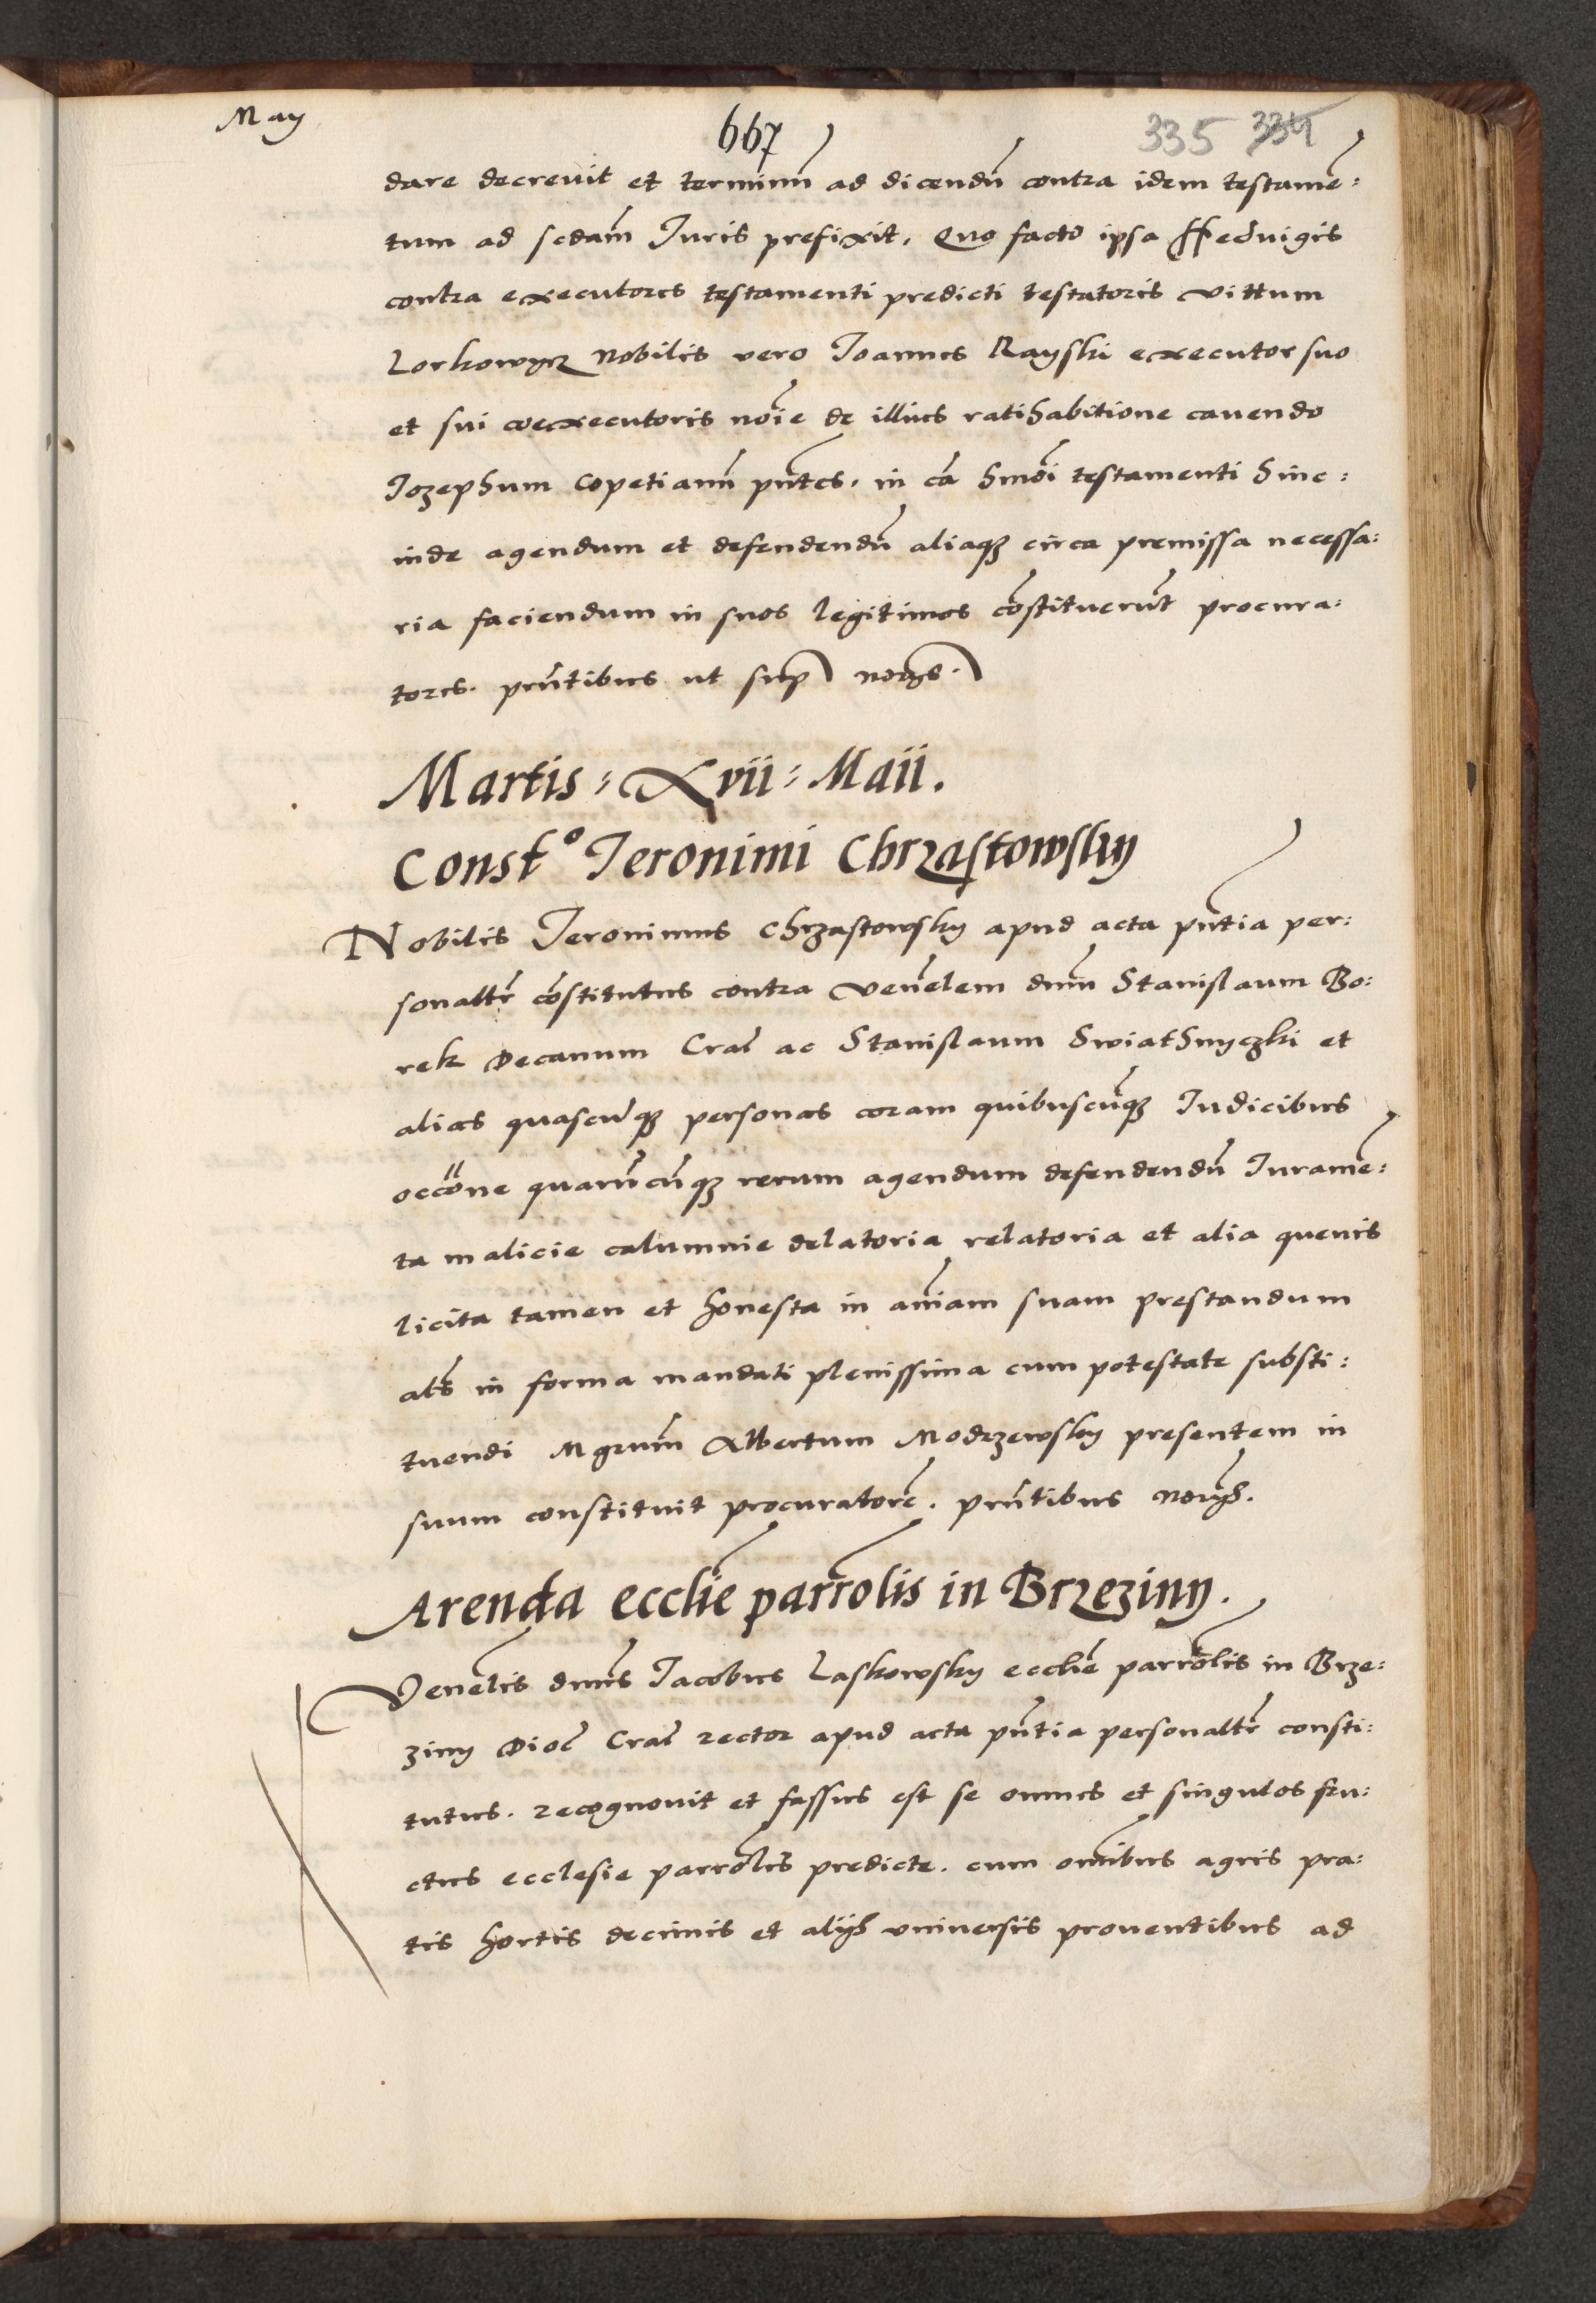 May
667
335 334
dare decrevit et terminũ ad dicendũ contra idem testamẽ:
tum ad sc̃dam Juris prefixit, Quo facto ipsa Heduigis
contra executores testamenti predicti testatoris vittum
Lorkowycz Nobilis vero Joannes Rayski executor suo
et sui coexecutoris nõie de illius ratihabitione cavendo
Jozephum Copetianũ pñtes. in cã hmõi testamenti hinc:
inde agendum et defendendũ aliaqȝ circa premissa necessa:
ria faciendum in suos legitimos cõstituerũt procura:
tores. pñtibus ut sup nor̃ys.
Martis: Xvii: Maii.
Const° Jeronimi Chrzastowsky
Nobilis Jeronimus Chrzastowsky apud acta pñtia per:
sonalitr̃ cõstitutus contra Veñelem dñum Stanislaum Bo:
rek Decanum Crał ac Stanislaum Swiathnyczki et
alias quascũqȝ personas coram quibuscũqȝ Judicibus
occõne quarũcũqȝ rerum agendum defendendũ Juramẽ:
ta malicie calumnie delatoria relatoria et alia quevis
licita tamen et honesta in aĩam suam prestandum
als̃ in forma mandati plenissima cum potestate substi:
tuendi Mgrũm Albertum Modrzewsky presentem in
suum constituit procuratorẽ. pñtibus nor̃ys.
Arenda eccliẽ parrõlis in Brzeziny.
Veñelis dñus Jacobus Laskowsky eccliẽ parrõlis in Brze:
ziny Dioc̃ Crał rector apud acta pñtia personalitr̃ consti:
tutus. recognovit et fassus est se omnes et singulos fru:
ctus ecclesie parrõlis predicte. cum oñibus agris pra:
tis hortis decimis et alijs universis proventibus ad